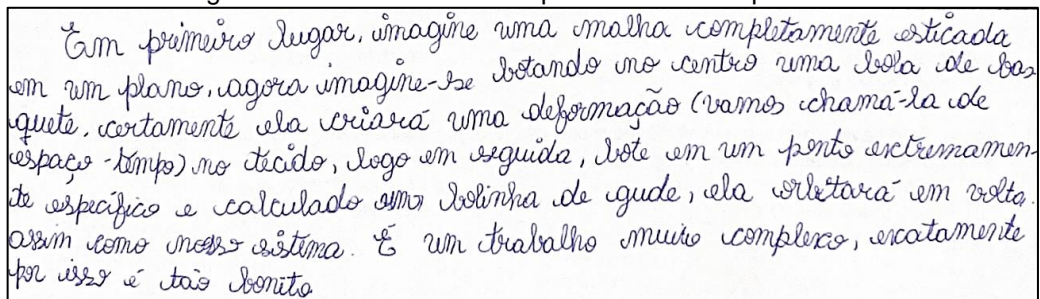 Em primeiro lugar, imagine uma malha completamente esticada
em um plano, agora imagine-se botando no centro uma bola de bas
quete, certamente ela criará uma deformação (vamos chamá-la de
espaço-tempo) no tecido, logo em seguida, bote em um ponto extremamen-
te específico e calculado uma bolinha de gude, ela orbitará em volta.
assim como nosso sistema. É um trabalho muito complexo, exatamente
por isso é tão bonito